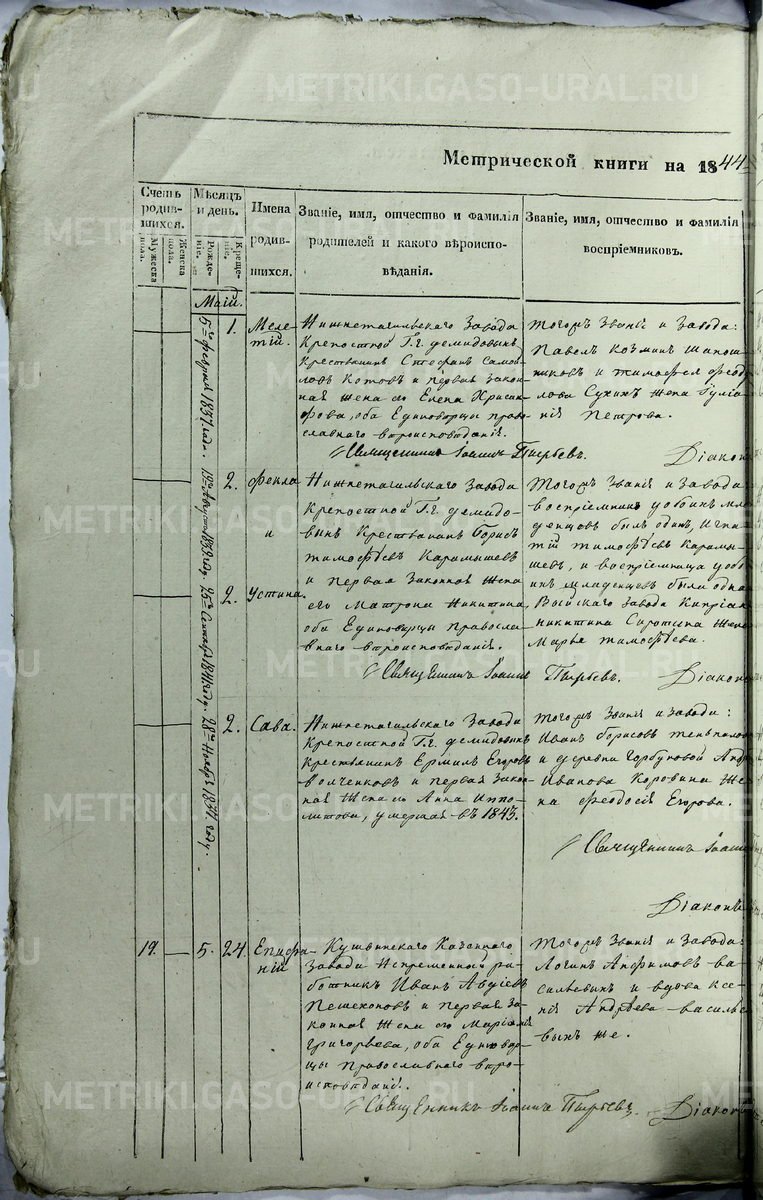 METRIKI.GASO-URAL.RU
Метрической книги на 1844
Счетъ родившихся.
Мужеска пола.
Женска пола.
Мѣсяцъ и день.
Рожденіе.
Крещеніе.
Имена родившихся.
Званіе, имя, отчество и фамилія
родителей и какого вѣроиспо-
вѣданія.
Званіе, имя, отчество и фамилія
воспріемниковъ.
Маій.
5го февраля 1837 года.
1.
Меле-
тій.
Нижнетагильскаго Завода
Крепостной Г.г. демидовыхъ
крестьянинъ Стефанъ Самой-
ловъ Котовъ и первая закон-
ная жена его Елена Хрисан-
фова, оба Единоверцы право-
славнаго вѣроисповѣданія.
Тогожъ Званія и Завода:
Павелъ козминъ шапош-
никовъ и тимофея
Сухихъ жена Іуліа-
нія Петрова.
Священникъ Іоаннъ Пырьевъ.
Діаконъ
1839 году.
2.
Фекла
и
Нижнетагильскаго Завода
крепостной Г.г. демидо-
выхъ Крестьянинъ Борисъ
тимофѣевъ Карамышевъ
и первая Законная жена
его Матрона Никитина,
оба Единоверцы Правосла-
внаго вѣроисповѣданія.
Тогожъ Званія и Завода:
воспріемникъ у обоихъ мла-
денцовъ былъ одинъ, Игна-
тій тимофѣевъ Карамы-
шевъ, и воспріемница у обо-
ихъ младенцевъ была одна
Выйскаго завода Кипріана
никитина Сиротина жена
Марья тимофѣева.
25го Сентября 1841 году.
2.
Устина.
Священникъ Іоаннъ Пырьевъ.
Діаконъ
28го Ноября 1841 году.
2.
Сава.
Нижнетагильскаго Завода
Крепостной Г.г. демидовыхъ
крестьянинъ Ермилъ Егоровъ
волченковъ и первая Закон-
ная жена его Анна Иппо-
литова, умершая въ 1843.
Тогожъ Званія и завода:
Иванъ борисовъ
и деревни Горбуновой
Иванова Коровина же-
на феодосія Егорова.
Священникъ Іоаннъ
Діаконъ
19.
5.
24.
Епифа-
ній
Кушвинскаго Казеннаго
Завода Непременный ра-
ботникъ Иванъ Авдіевъ
и первая За-
конная жена его Маріамія
григорьева, оба Единовер-
цы Православнаго вѣро-
исповѣданія.
Тогожъ Званія и Завода:
Логинъ Анфимовъ ва-
сильевыхъ и вдова Ксе-
нія Андрѣева василье-
выхъ же.
Священникъ Іоаннъ Пырьевъ.
Діаконъ